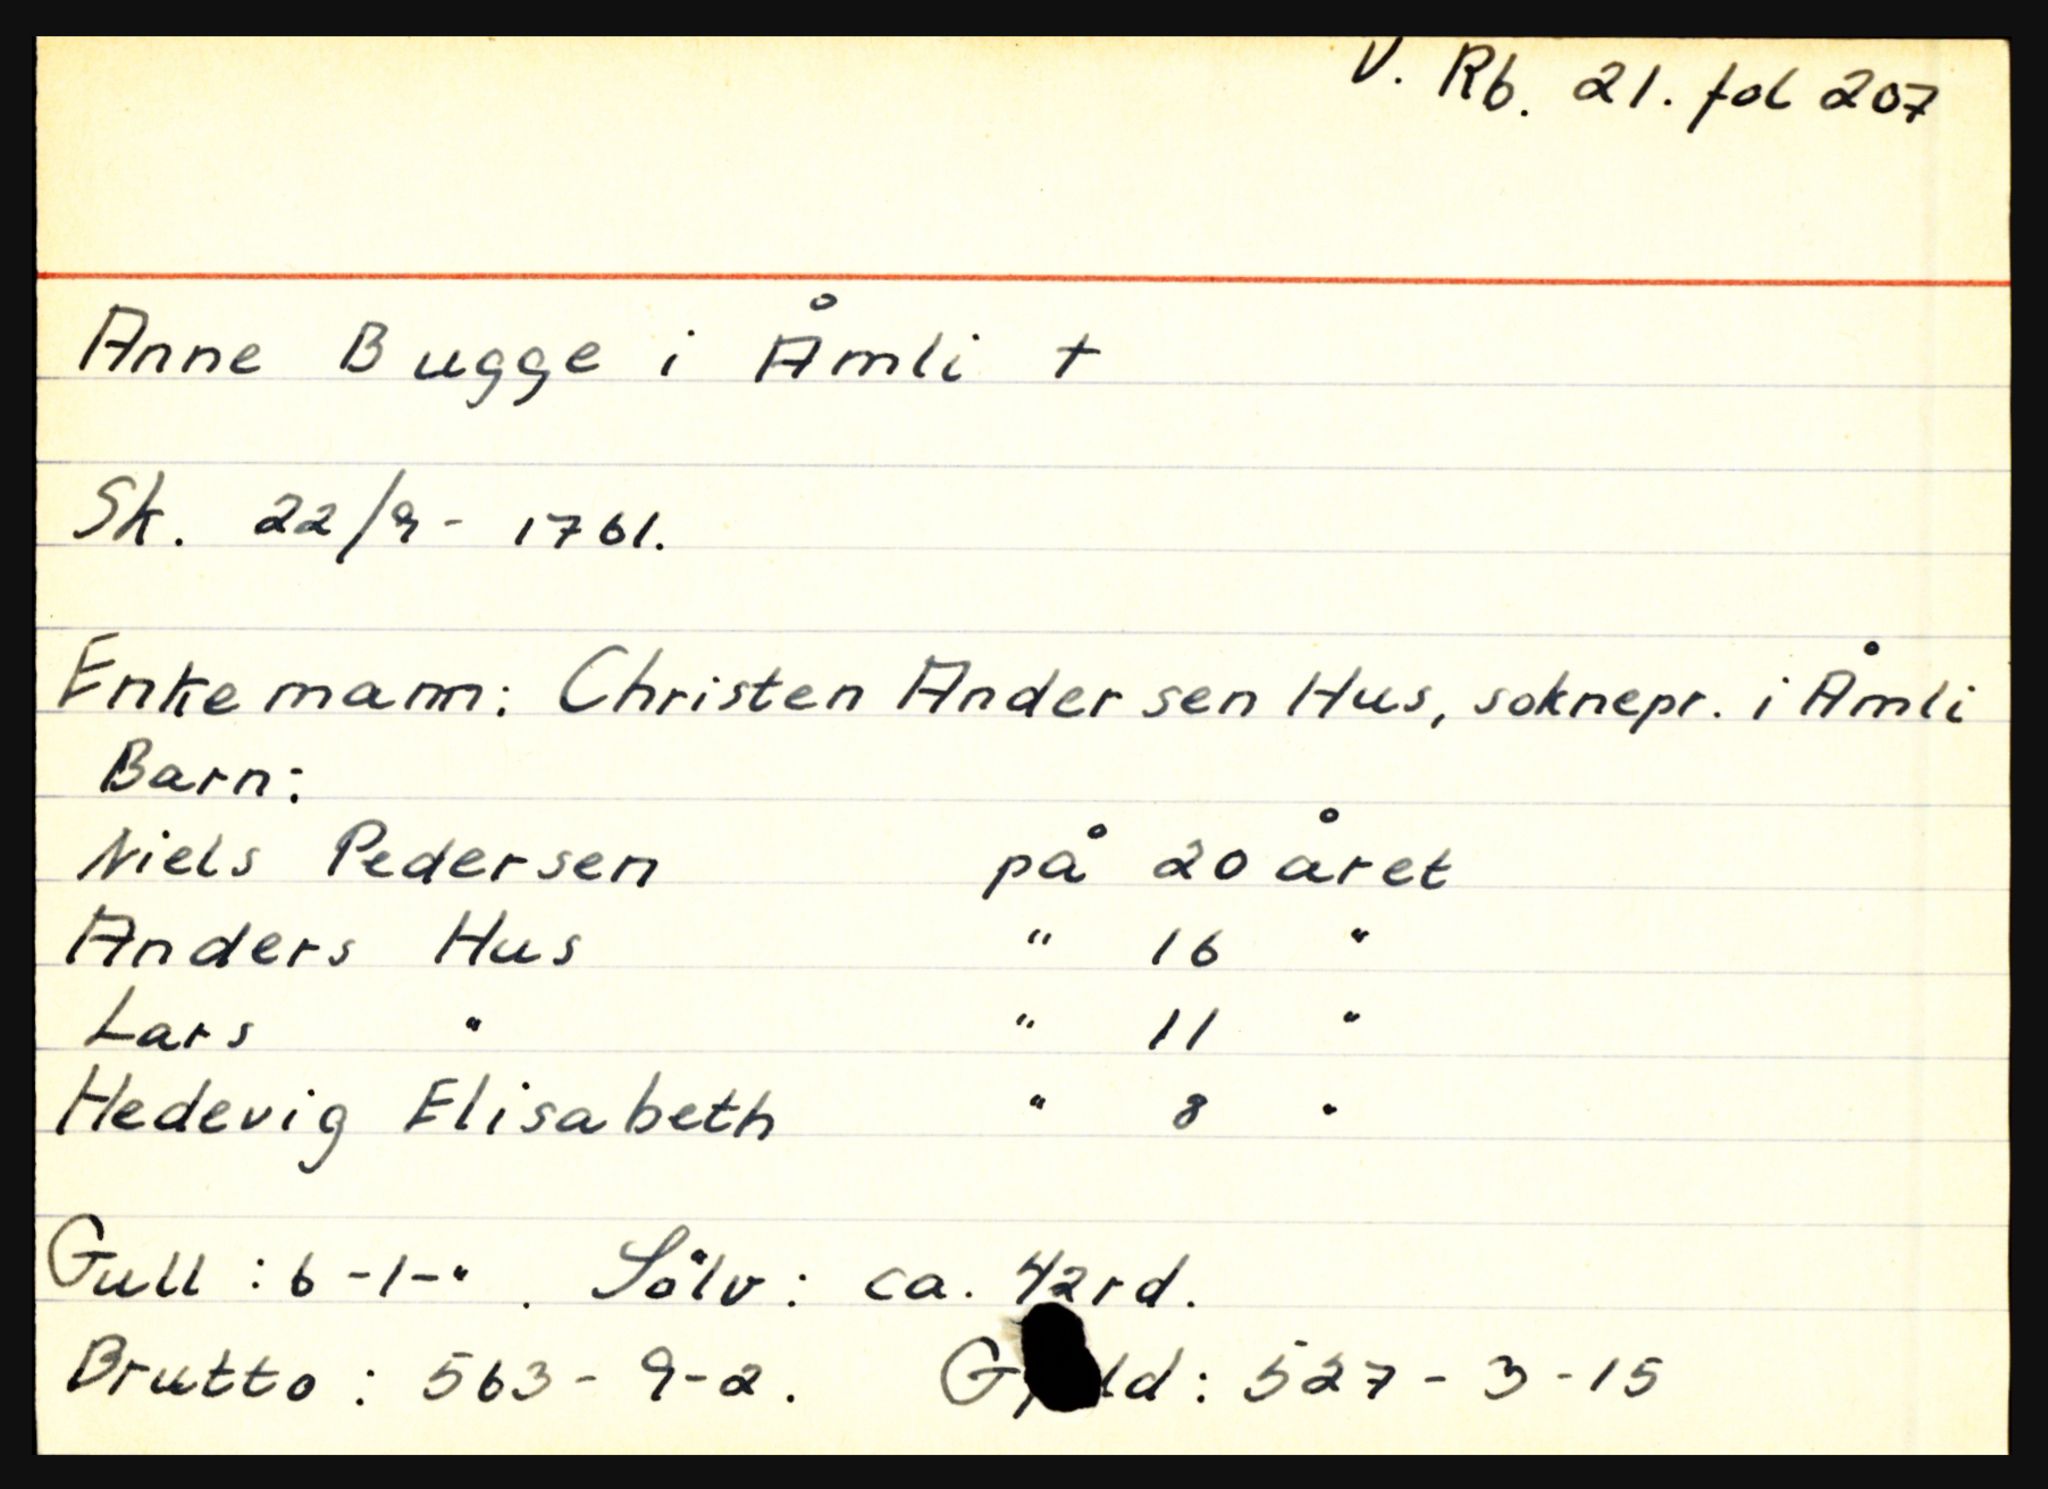 V. Rb. 21. fol 207
Anne Bugge i Åmli +
Sk. 22/9 - 1761.
Enkemann: Christen Andersen Hus, soknepr. i Åmli
Barn:
Niels Pedersen på 20 året
Anders Hus " 16 "
Lars " " 11 "
Hedevig Elisabeth " 8 "
Gull: 6-1-". Sölv: ca. 42rd.
Brutto: 563-9-2. : 527-3-15